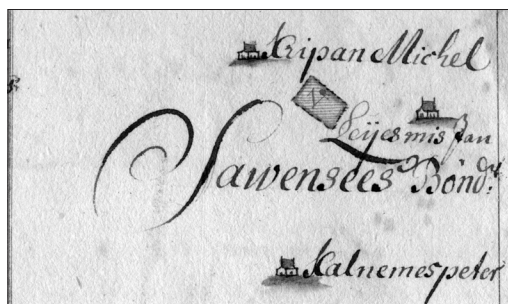 Kripan Michel
V
Leijes mis Jan
Sawensees Bönd:r
Kalnemes peter